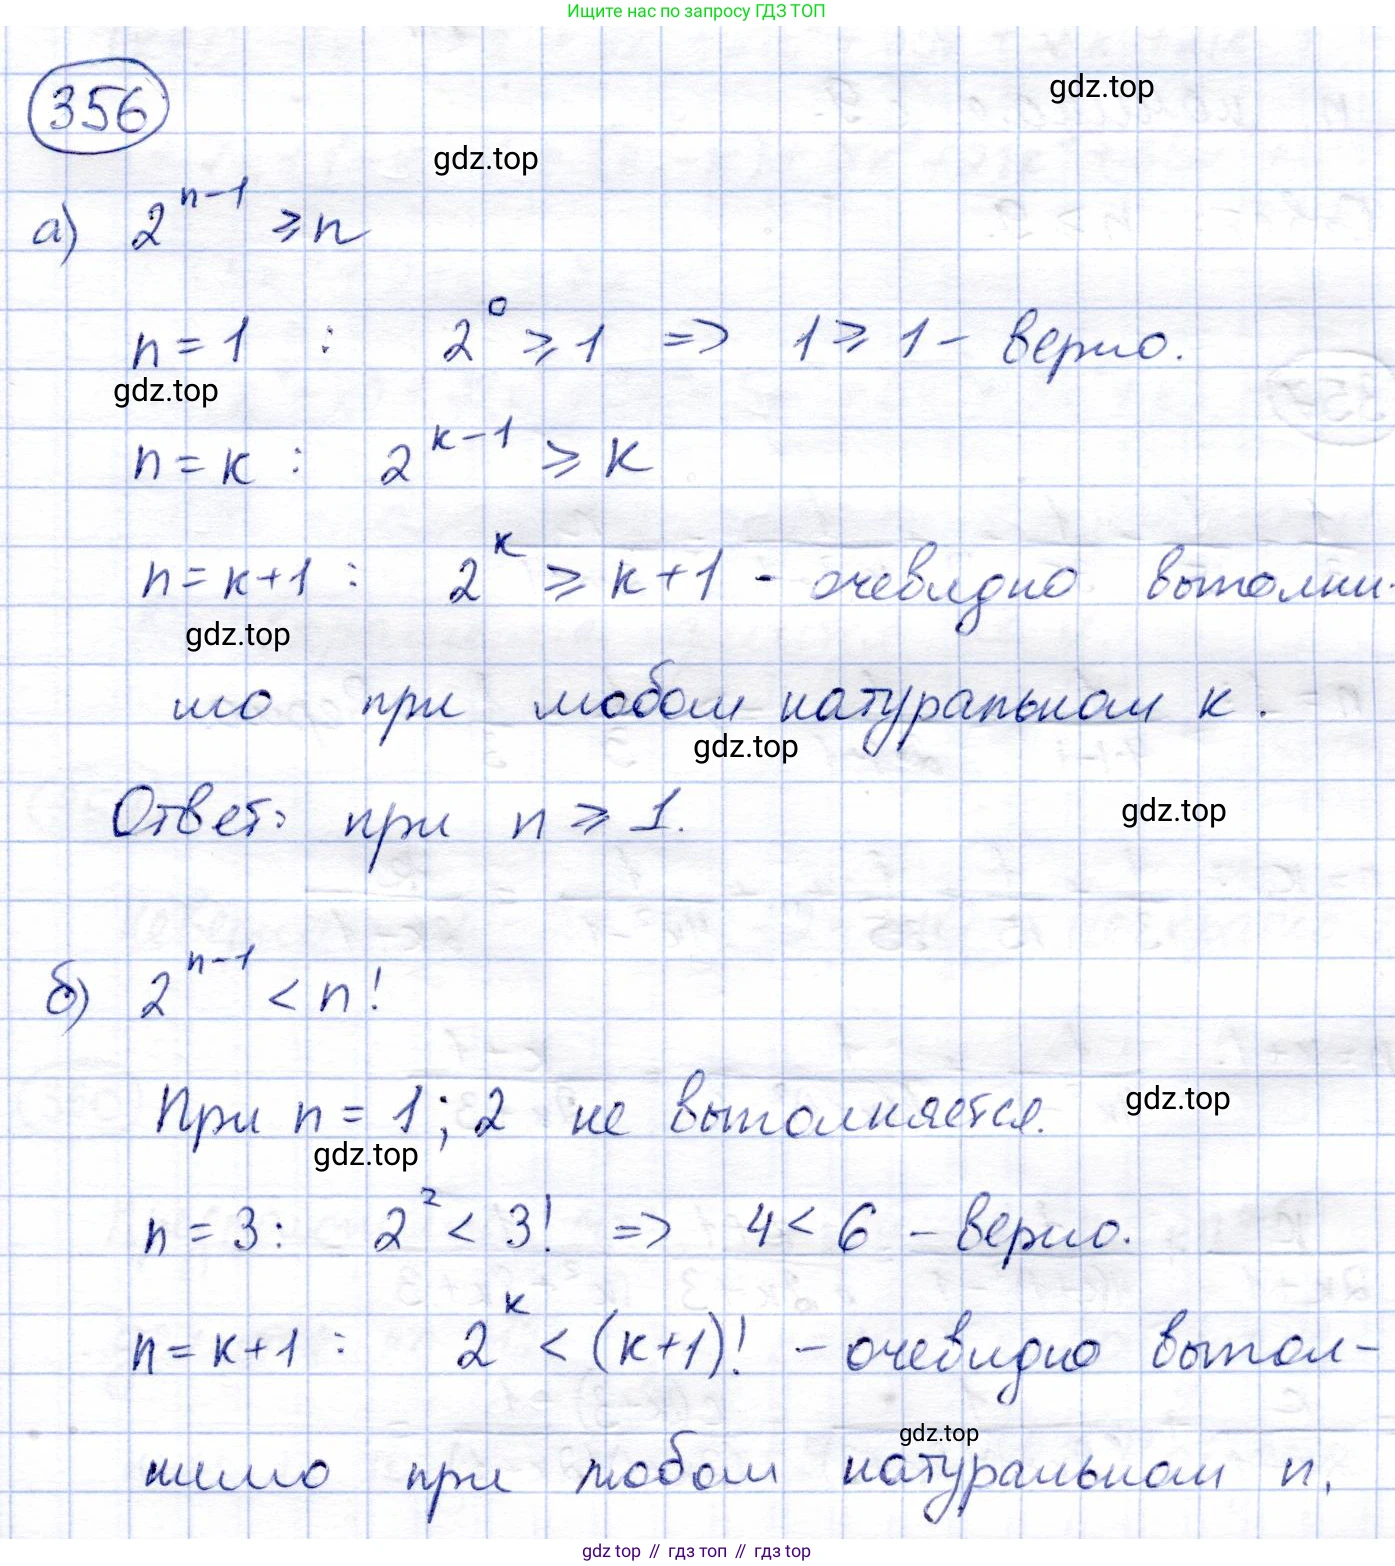 Ищите нас по запросу ГДЗ ТОП
gdz.top
356
gdz.top
а) 2^{n-1} ⩾ n
n = 1 : 2^0 ⩾ 1 => 1 ⩾ 1 - верно.
gdz.top
n = к : 2^{к-1} ⩾ к
n = к+1 : 2^к ⩾ к+1 - очевидно выполни-
gdz.top
мо при любом натуральном к.
gdz.top
Ответ: при n ⩾ 1.
gdz.top
б) 2^{n-1} < n!
При n = 1; 2 не выполняется.
gdz.top
gdz.top
n = 3: 2^2 < 3! => 4 < 6 - верно.
n = к+1 : 2^к < (к+1)! - очевидно выпол-
gdz.top
нимо при любом натуральном n,
gdz top // гдз топ // гдз top